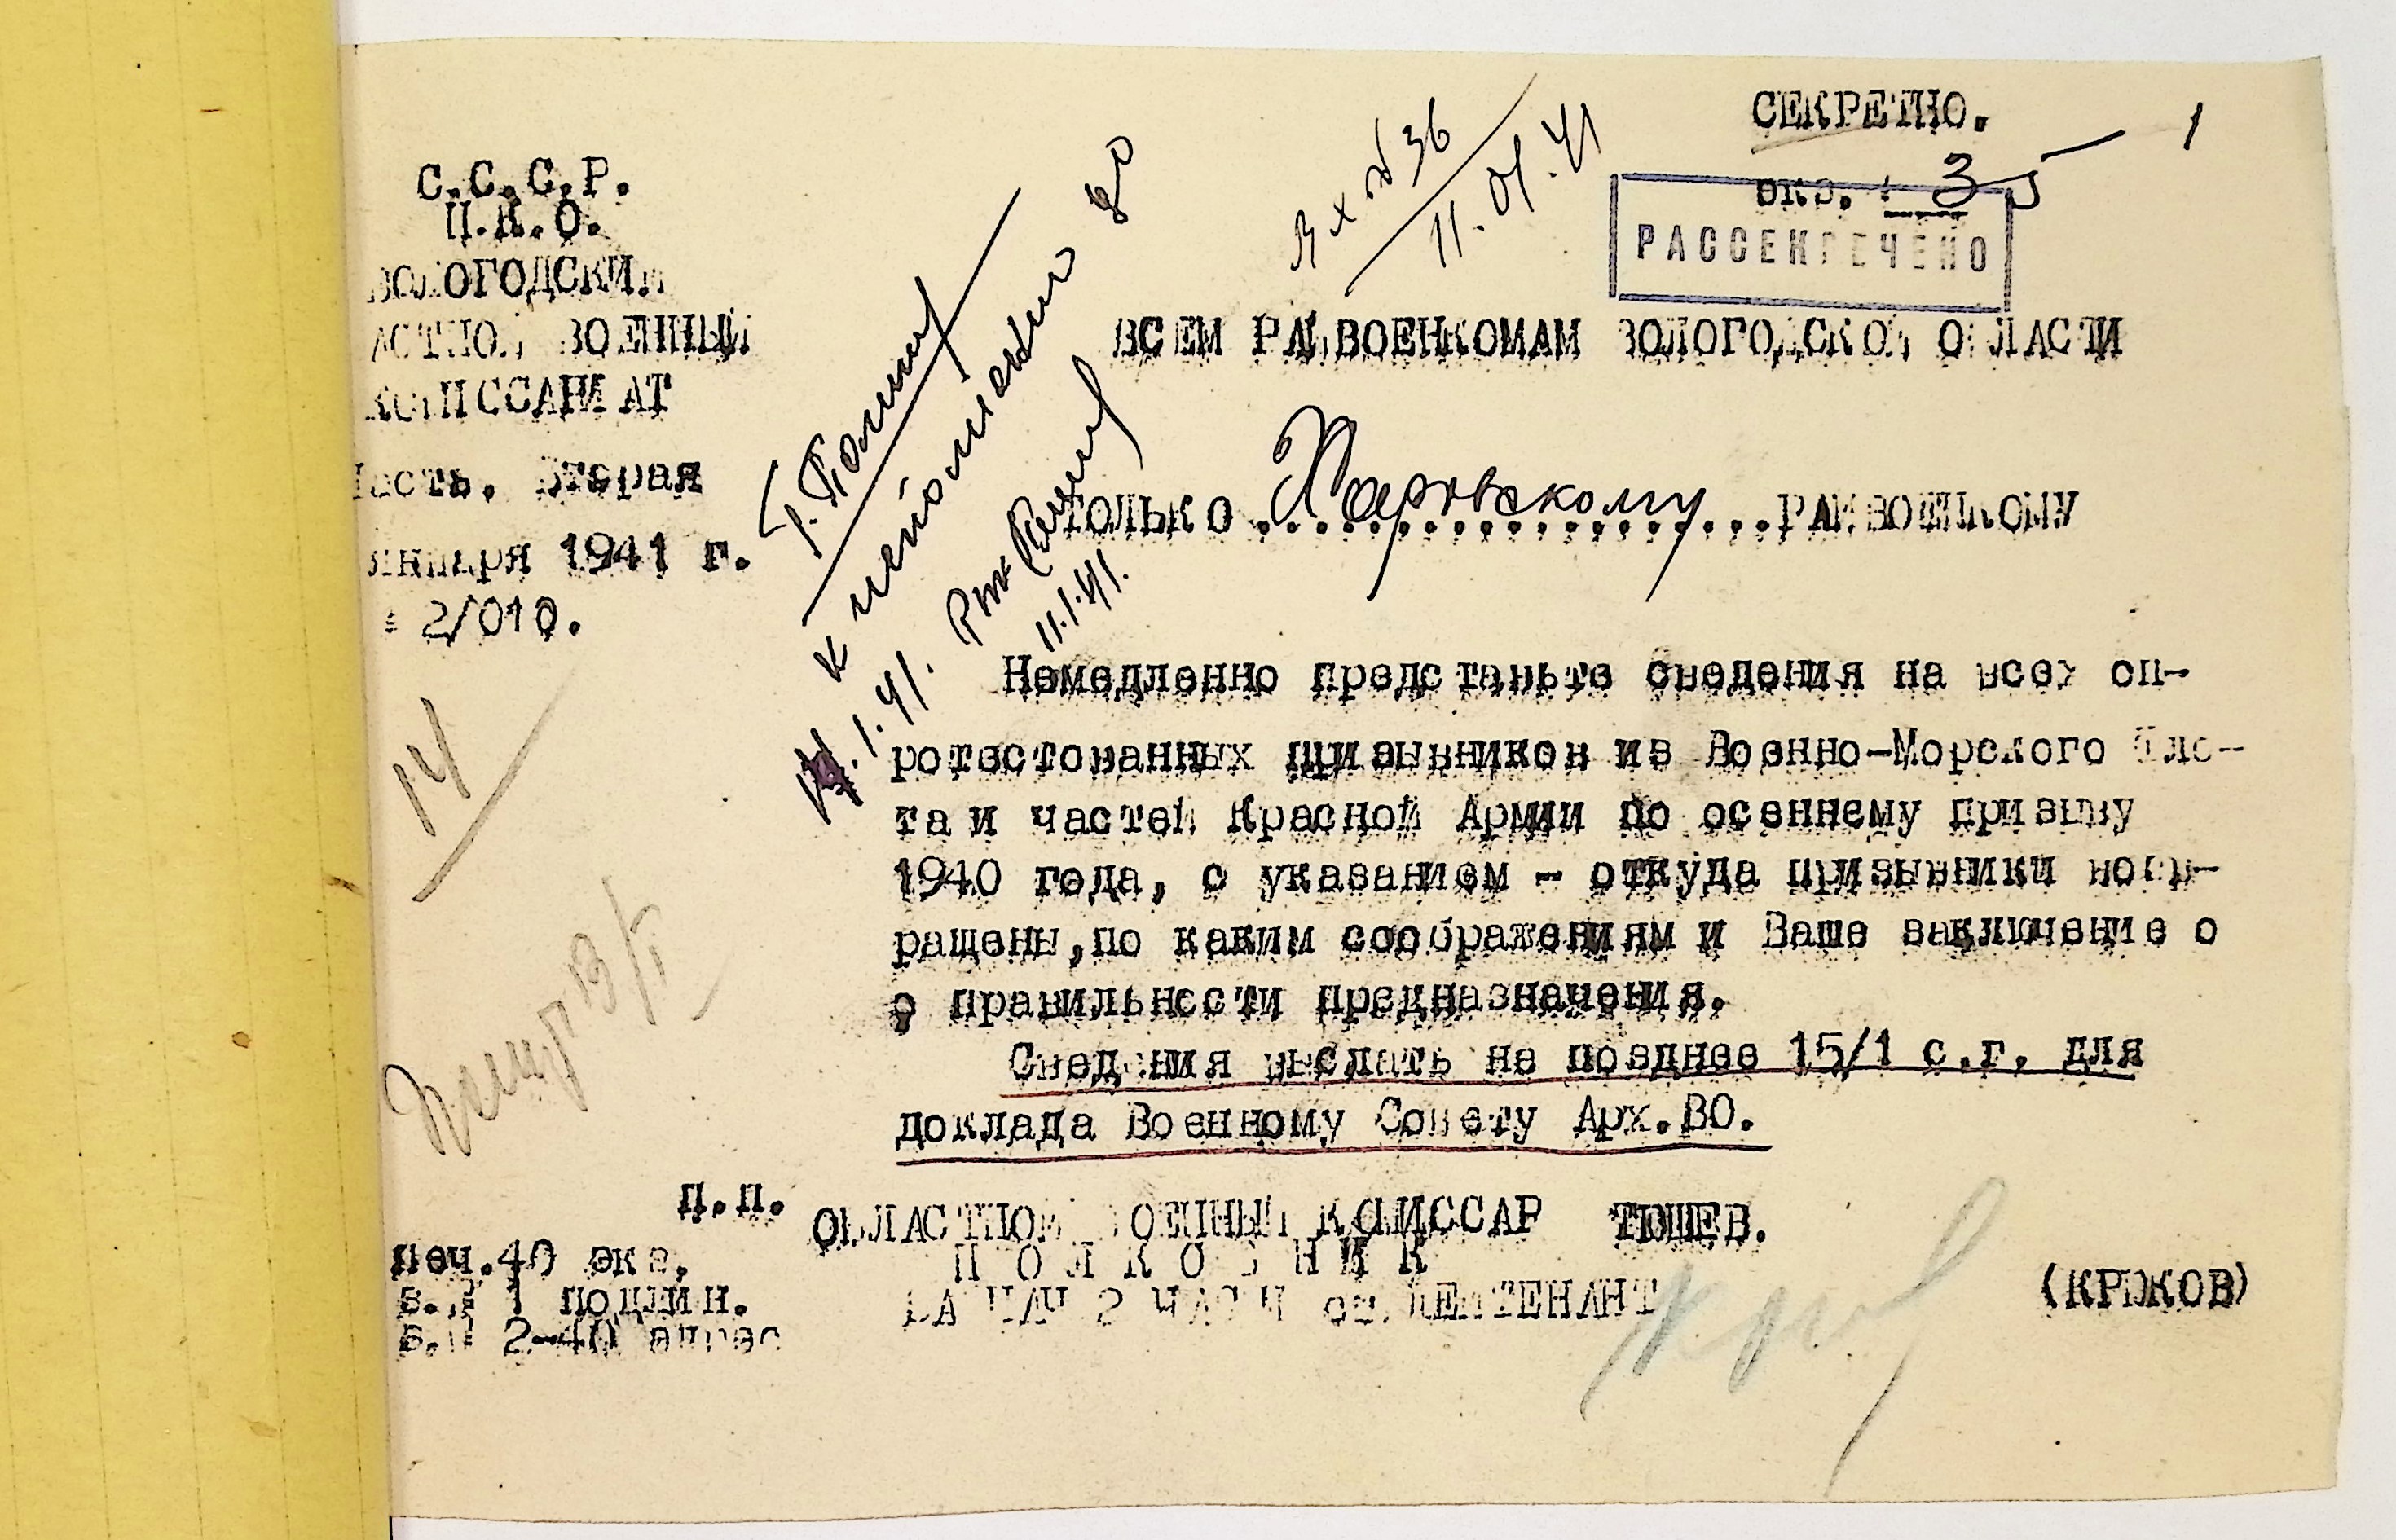 СЕКРЕТНО.
1
экз. № 35
РАССЕКРЕЧЕНО
Вх №36
11.01.41
С.С.С.Р.
Н.К.О.
ВОЛОГОДСКИЙ
АСТНОЙ ВОЕННЫЙ
КОМИССАРИАТ
Часть, Вторая
января 1941 г.
№ 2/010.
ВСЕМ РАЙВОЕНКОМАМ ВОЛОГОДСКОЙ ОБЛАСТИ
ТОЛЬКО ................ РАЙВОЕНКОМУ
к исполнению
11.1.41.
Немедленно представьте сведения на всех оп-
ротестованных призывников из Военно-Морского Фло-
та и частей Красной Армии по осеннему призыву
1940 года, с указанием - откуда призывники возв-
ращены,по каким соображениям и Ваше заключение о
о правильности предназначения.
Сведения выслать не позднее 15/1 с.г. для
доклада Военному Совету Арх.ВО.
14
13/I
п.п. ОБЛАСТНОЙ ВОЕННЫЙ КОМИССАР ТЮШЕВ.
ПОЛКОВНИК
ЗА НАЧ 2 ЧАСТИ ст. ЛЕЙТЕНАНТ (КРЮКОВ)
печ.40 экз.
э.№ 1 подшив.
э.№ 2-40 адрес